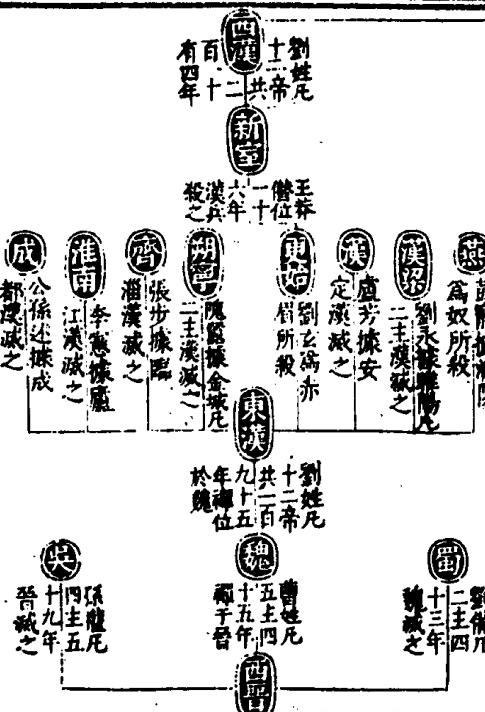 西漢
劉姓凡
十二帝
共二
百一十
有四年
新室
王莽
僭位
一十
六年
漢兵
殺之
燕
彭寵據漁陽
爲奴所殺
漢
劉永據睢陽凡
二主漢滅之
漢
盧芳據安
定漢滅之
更始
劉玄爲赤
眉所殺
朔寧
隗囂據金城凡
二主漢滅之
齊
張步據臨
淄漢滅之
淮南
李憲據廬
江漢滅之
成
公孫述據成
都漢滅之
東漢
劉姓凡
十二帝
共一百
九十五
年禪位
於魏
蜀
劉備凡
二主四
十三年
魏滅之
魏
曹姓凡
五主四
十五年
禪于晉
吳
孫權凡
四主五
十九年
晉滅之
西晉